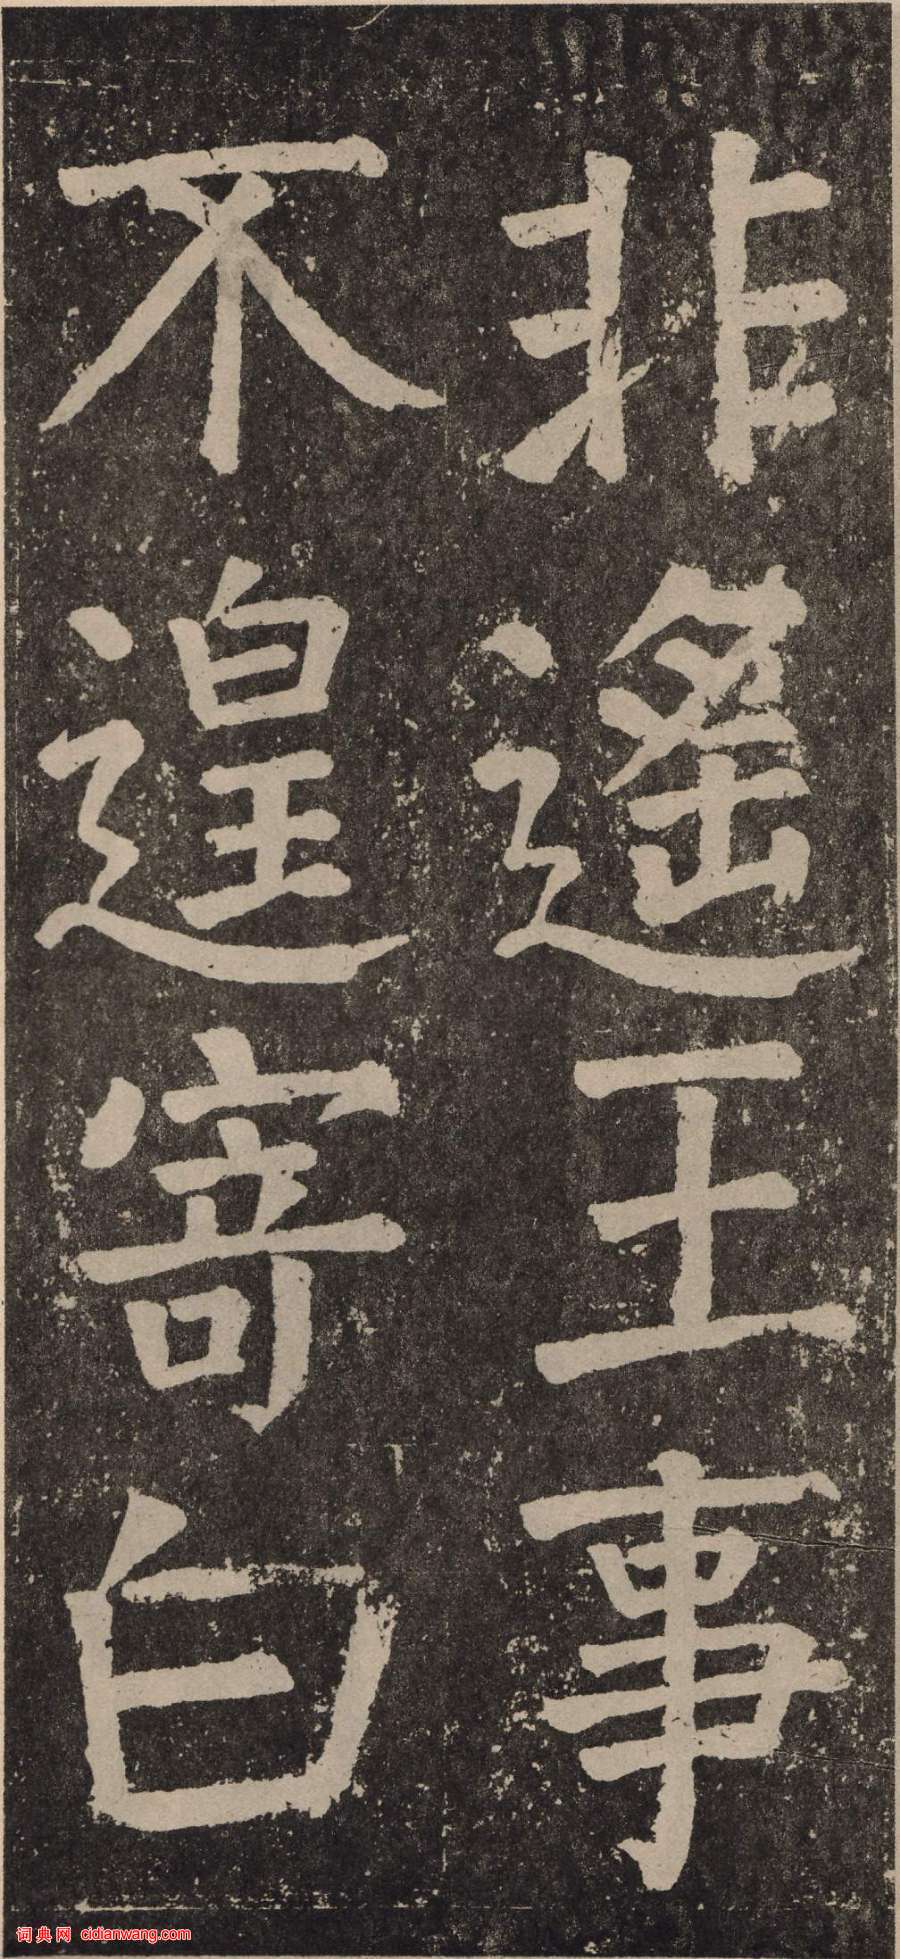 非遙王事
不遑寄白
词典网 cidianwang.com